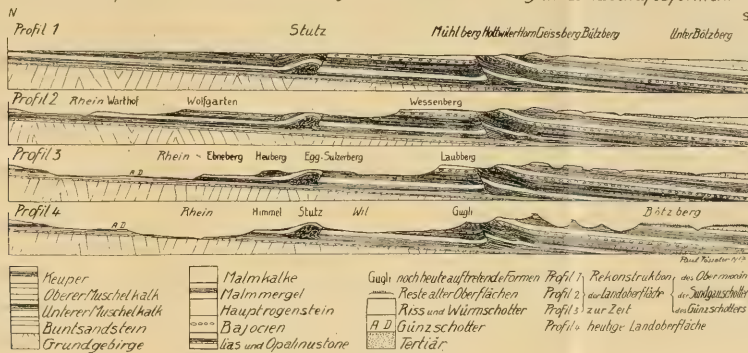 N
S
Profil 1 Stutz Mühlberg Hottwiler Horn Geissberg Bützberg Unter Bötzberg
Profil 2 Rhein Warthof Wolfgarten Wessenberg
Profil 3 Rhein Ebneberg Heuberg Egg-Sulzerberg Laubberg
A D
Profil 4 Rhein Himmel Stutz Wil Gugli Bötzberg
A D
Keuper
Oberer Muschelkalk
Unterer Muschelkalk
Buntsandstein
Grundgebirge
Malmkalke
Malmmergel
Hauptrogenstein
Bajocien
Lias und Opalinustone
Gugli noch heute auftretende Formen
Reste alter Oberflächen
Riss und Würmschotter
A D Günzschotter
Tertiär
Profil 1 Rekonstruktion des Obermiocän
Profil 2 der Landoberfläche der Sundgauschotter
Profil 3 zur Zeit des Günzschotters
Profil 4 heutige Landoberfläche